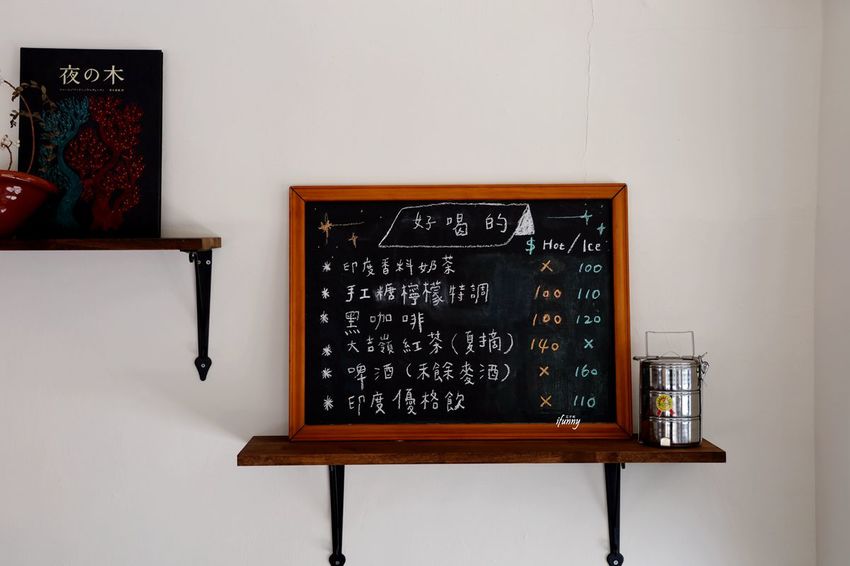 夜の木
好喝的
$ Hot / Ice
* 印度香料奶茶 X 100
* 手工糖檸檬特調 100 110
* 黑咖啡 100 120
* 大吉嶺紅茶（夏摘） 140 X
* 啤酒（禾餘麥酒） X 160
* 印度優格飲 X 110
ifunny